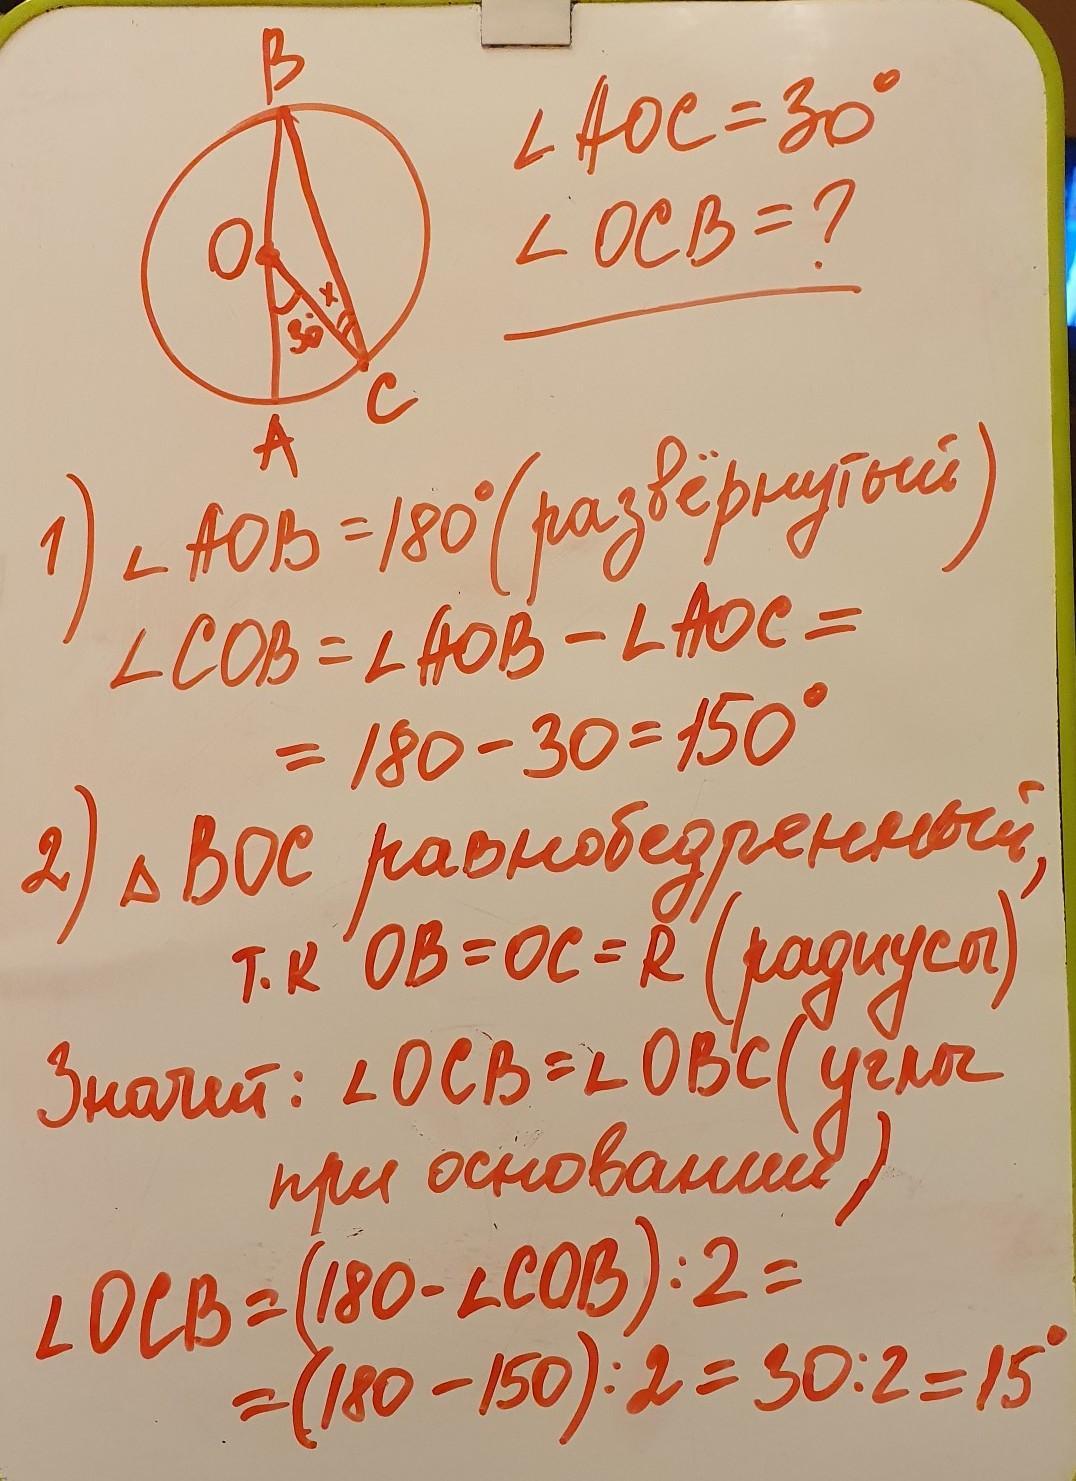 B
∠AOC = 30°
∠OCB = ?
O
x
30°
C
A
1) ∠AOB = 180° (развёрнутый)
∠COB = ∠AOB - ∠AOC =
= 180 - 30 = 150°
2) △BOC равнобедренный,
т.к OB = OC = R (радиусы)
Значит: ∠OCB = ∠OBC (углы
при основании)
∠OCB = (180 - ∠COB) : 2 =
= (180 - 150) : 2 = 30 : 2 = 15°